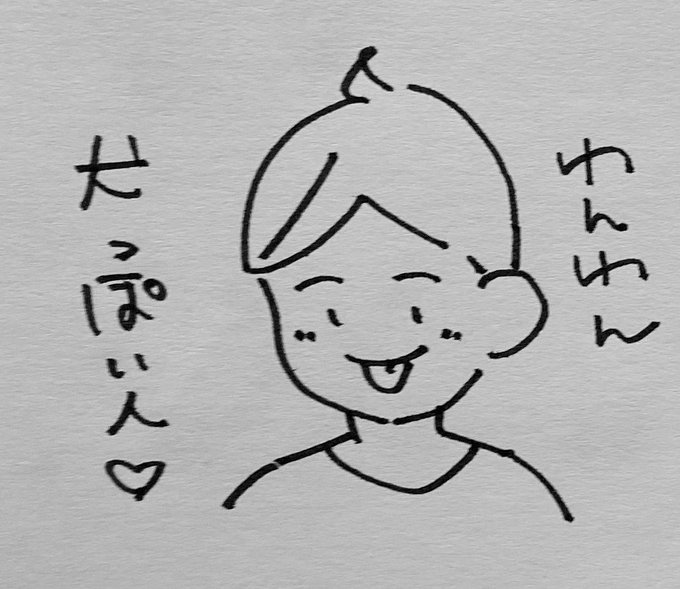 わんわん
犬っぽい人♡